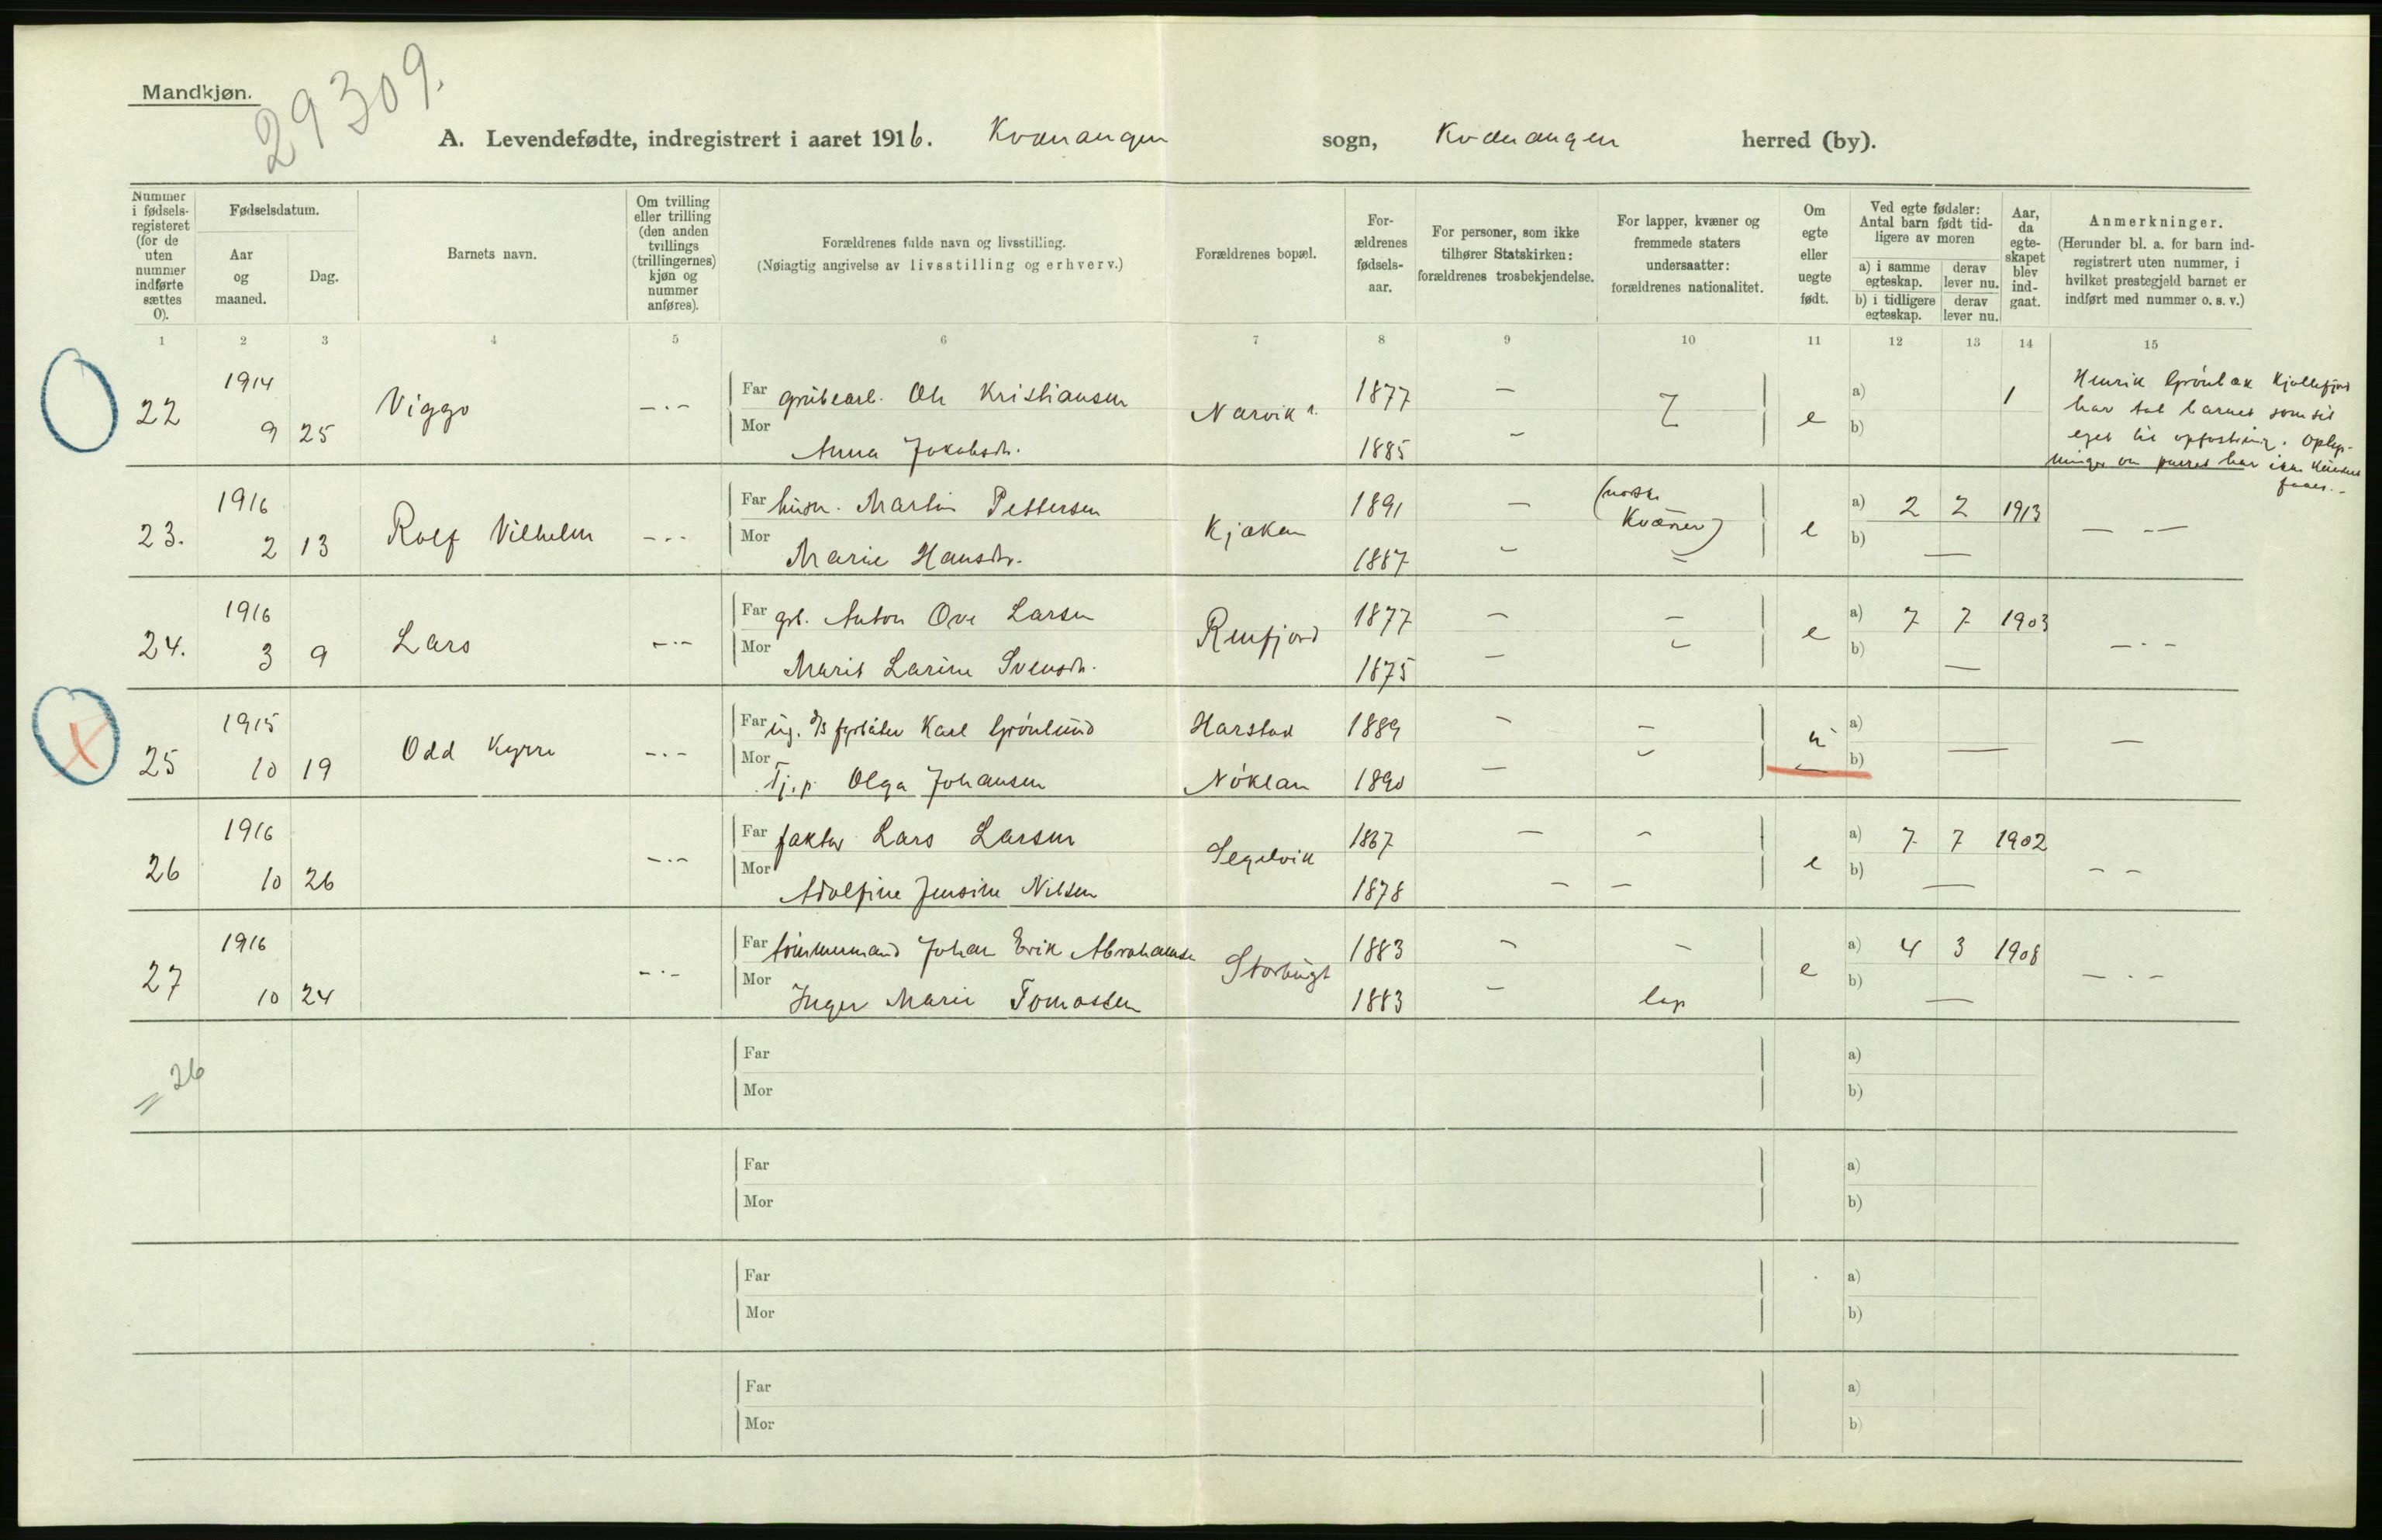 Mandkjøn.
29309.
A. Levendefødte, indregistrert i aaret 1916. Kvænangen sogn, Kvænangen herred (by).
Nummer i fødselsregisteret (for de uten nummer indførte sættes 0).
Fødselsdatum.
Aar og maaned.
Dag.
Barnets navn.
Om tvilling eller trilling (den anden tvillings (trillingernes) kjøn og nummer anføres).
Forældrenes fulde navn og livsstilling.
(Nøiagtig angivelse av livsstilling og erhverv.)
Forældrenes bopæl.
Forældrenes fødselsaar.
For personer, som ikke tilhører Statskirken: forældrenes trosbekjendelse.
For lapper, kvæner og fremmede staters undersaatter: forældrenes nationalitet.
Om egte eller uegte født.
Ved egte fødsler: Antal barn født tidligere av moren
a) i samme egteskap.
derav lever nu.
b) i tidligere egteskap.
derav lever nu.
Aar, da egteskapet blev indgaat.
Anmerkninger.
(Herunder bl. a. for barn indregistrert uten nummer, i hvilket prestegjeld barnet er indført med nummer o. s. v.)
1 2 3 4 5 6 7 8 9 10 11 12 13 14 15
22 1914 9 25 Viggo -.- Far grubearb. Ole Kristiansen Narvik 1877 - e a) 1
Mor Anna Jakobsdr. 1885 - b)
Henrik Grönbæk Kjøllefjord
har tat barnet som sit
eget til opfostring. Oplys-
ninger om parret har ikke kunnet
faaes.-
23. 1916 2 13 Rolf Vilhelm -.- Far husm. Martin Pettersen Kjækan 1891 - (norske Kvæner) e a) 2 2 1913 - -
Mor Marie Hansdr. 1887 - = b) -
24. 1916 3 9 Lars -.- Far gb. Anton Ove Larsen Renfjord 1877 - - e a) 7 7 1903 -.-
Mor Marit Larine Svensdr. 1875 - - b) -
25 1915 10 19 Odd Kyrre -.- Far ug. D/S fyrbøter Karl Grönlund Harstad 1889 - - u a) -
Mor Tj.p. Olga Johansen Nöklan 1890 - - b) -
26 1916 10 26 -.- Far faktor Lars Larsen Segelvik 1867 - - e a) 7 7 1902 - -
Mor Adolfine Jensine Nilsen 1878 - - b) -
27 1916 10 24 -.- Far tömmermand Johan Erik Abrahamsen Storbugt 1883 - - e a) 4 3 1908 -.-
Mor Inger Marie Tomassen 1883 - lap b) -
= 26
Far a)
Mor b)
Far a)
Mor b)
Far a)
Mor b)
Far a)
Mor b)